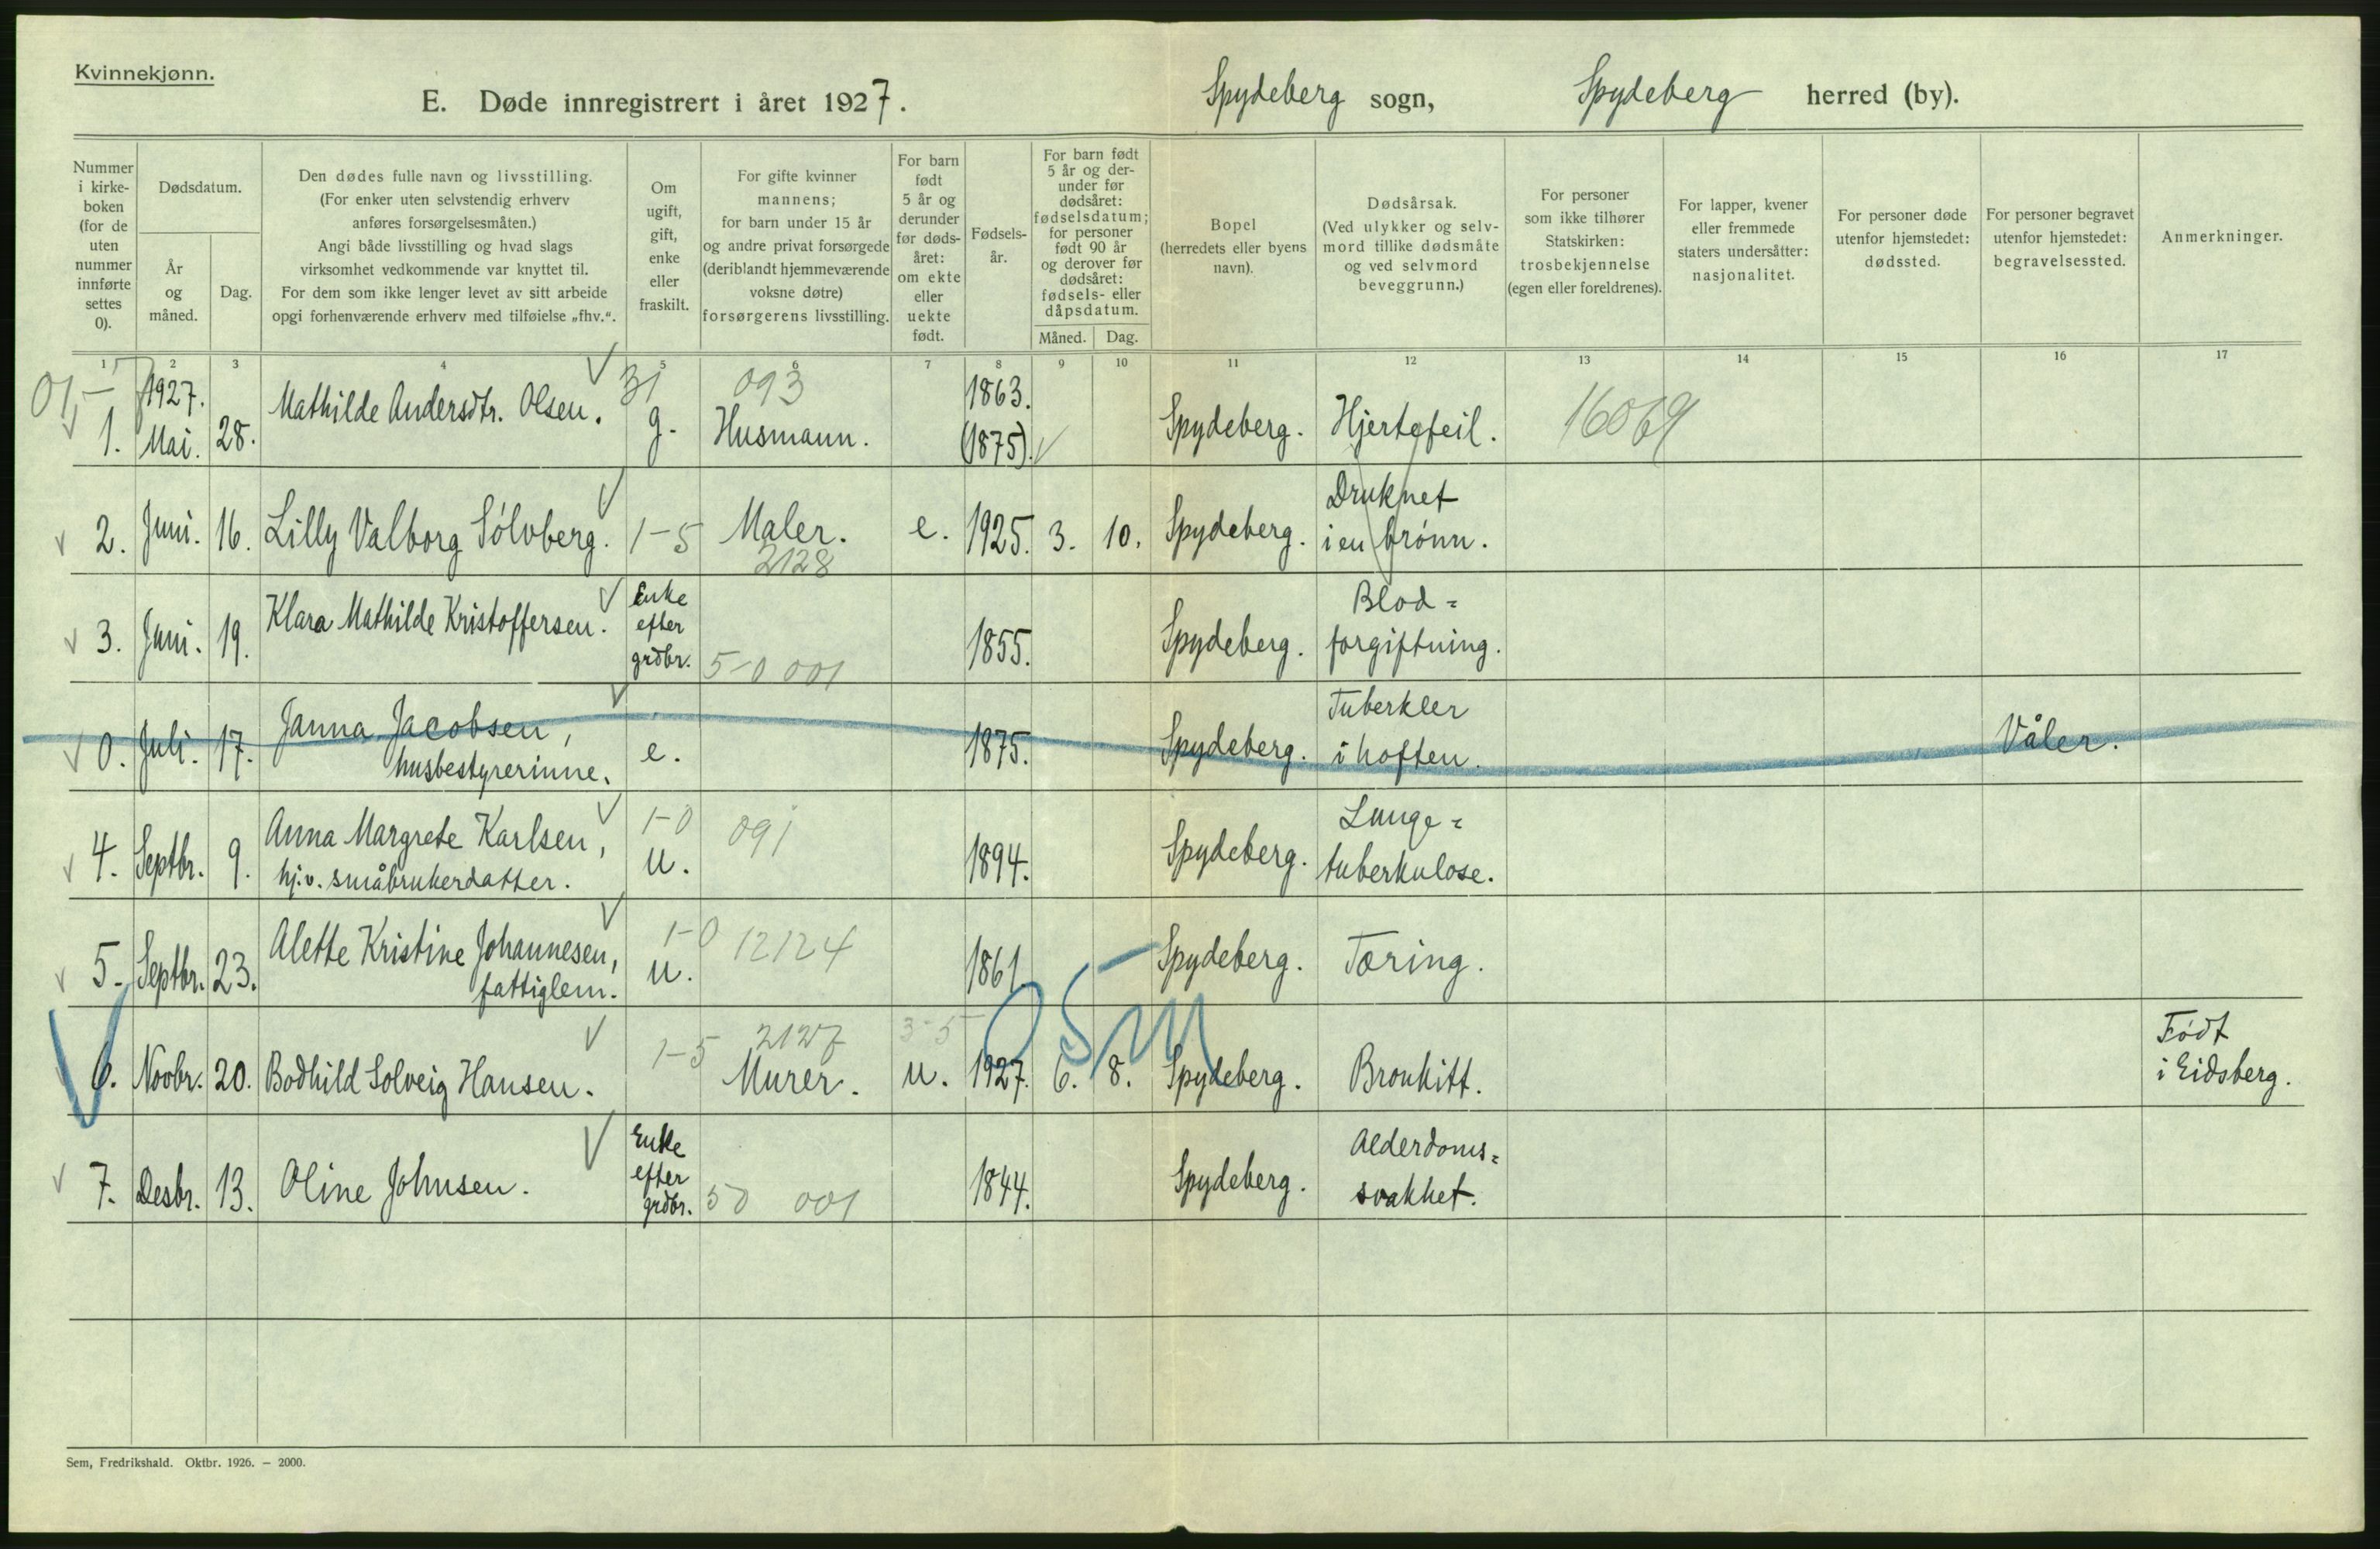 Kvinnekjønn.
E. Døde innregistrert i året 1927. Spydeberg sogn, Spydeberg herred (by).
Nummer
i kirke-
boken
(for de
uten
nummer
innførte
settes
0).
Dødsdatum.
År
og
måned.
Dag.
Den dødes fulle navn og livsstilling.
(For enker uten selvstendig erhverv
anføres forsørgelsesmåten.)
Angi både livsstilling og hvad slags
virksomhet vedkommende var knyttet til.
For dem som ikke lenger levet av sitt arbeide
opgi forhenværende erhverv med tilføielse „fhv.“.
Om
ugift,
gift,
enke
eller
fraskilt.
For gifte kvinner
mannens;
for barn under 15 år
og andre privat forsørgede
(deriblandt hjemmeværende
voksne døtre)
forsørgerens livsstilling.
For barn
født
5 år og
derunder
før døds-
året:
om ekte
eller
uekte
født.
Fødsels-
år.
For barn født
5 år og der-
under før
dødsåret:
fødselsdatum;
for personer
født 90 år
og derover før
dødsåret:
fødsels- eller
dåpsdatum.
Måned. Dag.
Bopel
(herredets eller byens
navn).
Dødsårsak.
(Ved ulykker og selv-
mord tillike dødsmåte
og ved selvmord
beveggrunn.)
For personer
som ikke tilhører
Statskirken:
trosbekjennelse
(egen eller foreldrenes).
For lapper, kvener
eller fremmede
staters undersåtter:
nasjonalitet.
For personer døde
utenfor hjemstedet:
dødssted.
For personer begravet
utenfor hjemstedet:
begravelsessted.
Anmerkninger.
1 2 3 4 5 6 7 8 9 10 11 12 13 14 15 16 17
1927. 31 093 1863.
1. Mai. 28. Mathilde Andersdtr. Olsen. g. Husmann. (1875). Spydeberg. Hjertefeil. 16069
Druknet
2. Juni. 16. Lilly Valborg Sølvberg. 1-5 Maler. e. 1925. 3. 10. Spydeberg. i en brønn.
2128
Enke Blod=
3. Juni. 19. Klara Mathilde Kristoffersen. efter 1855. Spydeberg. forgiftning.
grdbr. 5-0 001
Janna Jacobsen, Tuberkler
0. Juli. 17. husbestyrerinne. e. 1875. Spydeberg. i hoften. Våler.
Anna Margrete Karlsen, 1-0 091 Lunge=
4. Septbr. 9. hj.v. småbrukerdatter. u. 1894. Spydeberg. tuberkulose.
Alette Kristine Johannesen, 1-0 12124
5. Septbr. 23. fattiglem. u. 1861. Spydeberg. Tæring.
2127 3-5 Født
6. Novbr. 20. Bodhild Solveig Hansen. 1-5 Murer. u. 1927. 6. 8. Spydeberg. Bronkitt. i Eidsberg.
Enke Alderdoms=
7. Desbr. 13. Oline Johnsen. efter 1844. Spydeberg. svakhet.
grdbr. 50 001
Sem, Fredrikshald. Oktbr. 1926. — 2000.